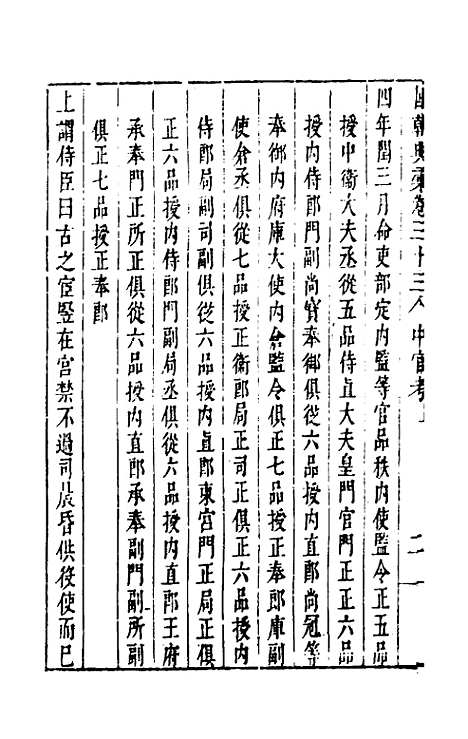 國朝典彙卷三十三人 中官考上 二
四年閏三月命吏部定內監等官品秩內使監令正五品
授中衛大夫丞從五品侍直大夫皇門官門正正六品
授內侍郎門副尚寶奉御俱從六品授內直郎尚冠等
奉御內府庫大使內倉監令俱正七品授正奉郎庫副
使倉丞俱從七品授正衛郎局正司正俱正六品授內
侍郎局副司副俱從六品授內直郎東宮門正局正俱
正六品授內侍郎門副局丞俱從六品授內直郎王府
承奉門正所正俱從六品授內直郎承奉副門副所副
俱正七品授正奉郎
上謂侍臣曰古之宦豎在宮禁不過司晨昏供役使而已